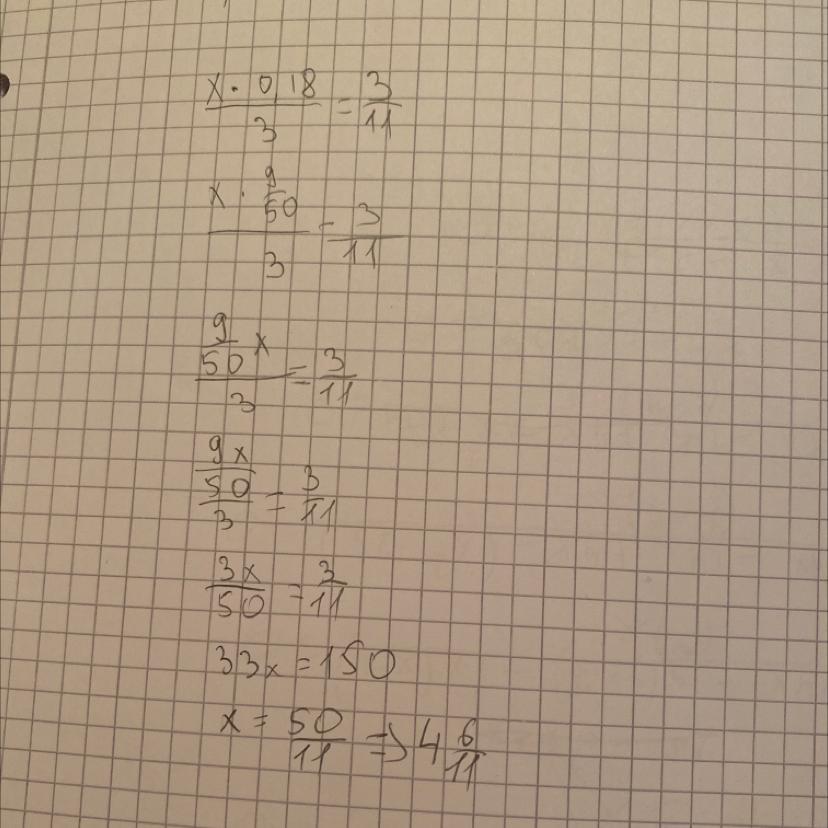 x · 0,18 / 3 = 3/11
x · 9/50 / 3 = 3/11
9/50 x / 3 = 3/11
9x/50 / 3 = 3/11
3x/50 = 3/11
33x = 150
x = 50/11 => 4 6/11